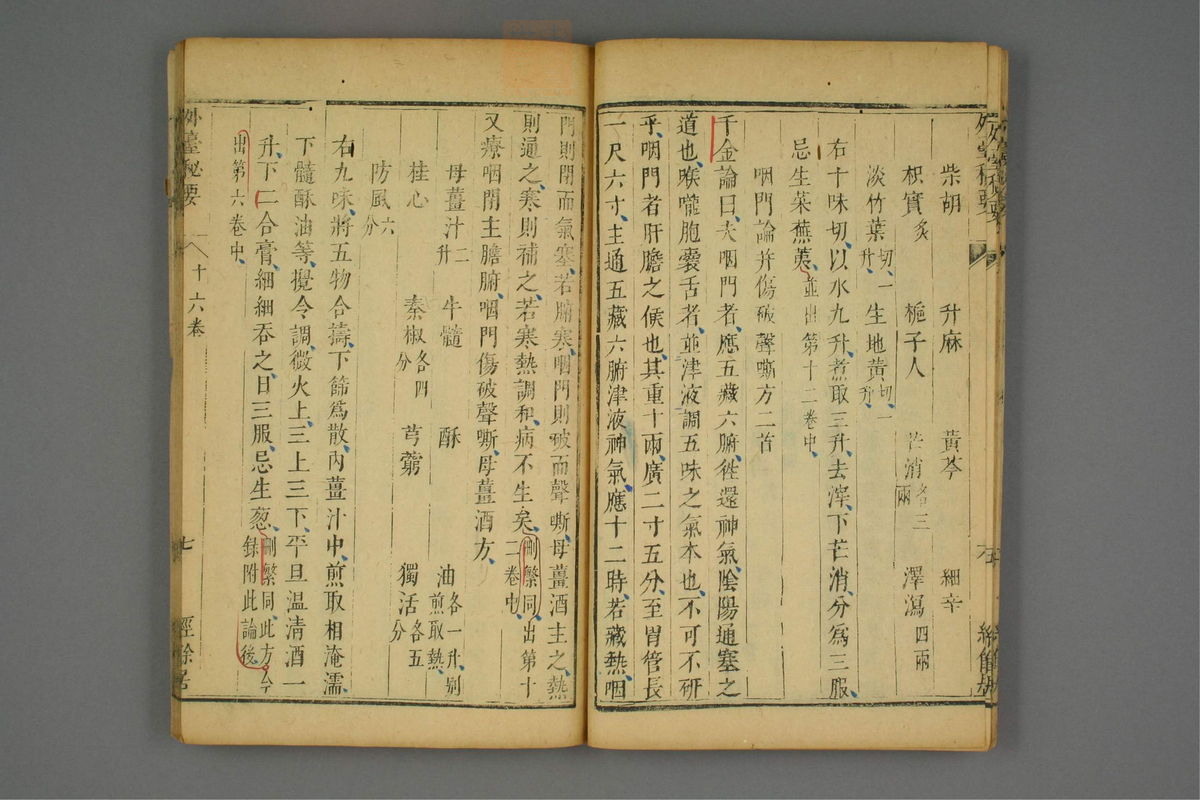 柴胡 升麻 黃芩 細辛
枳實炙 梔子人 芒消各三兩 澤瀉四兩
淡竹葉切一升 生地黃切一升
右十味切以水九升煮取三升去滓下芒消分爲三服
忌生菜蕪荑並出第十二卷中
咽門論并傷破聲嘶方二首
千金論曰夫咽門者應五藏六腑徃還神氣陰陽通塞之
道也喉嚨胞囊舌者並津液調五味之氣本也不可不研
乎咽門者肝膽之候也其重十兩廣二寸五分至胃管長
一尺六寸主通五藏六腑津液神氣應十二時若藏熱咽
門則閉而氣塞若腑寒咽門則破而聲嘶母薑酒主之熱
則通之寒則補之若寒熱調和病不生矣刪繁同出第十二卷中
又療咽閉主膽腑咽門傷破聲嘶母薑酒方
母薑汁二升 牛髓 酥 油各一升別煎取熱
桂心 秦椒各四分 芎藭 獨活各五分
防風六分
右九味將五物合擣下篩爲散內薑汁中煎取相淹濡
下髓酥油等攪令調微火上三上三下平旦温清酒一
升下二合膏細細吞之日三服忌生葱刪繁同此方今錄附此論後
出第六卷中
外臺秘要 十六卷 七 經餘居